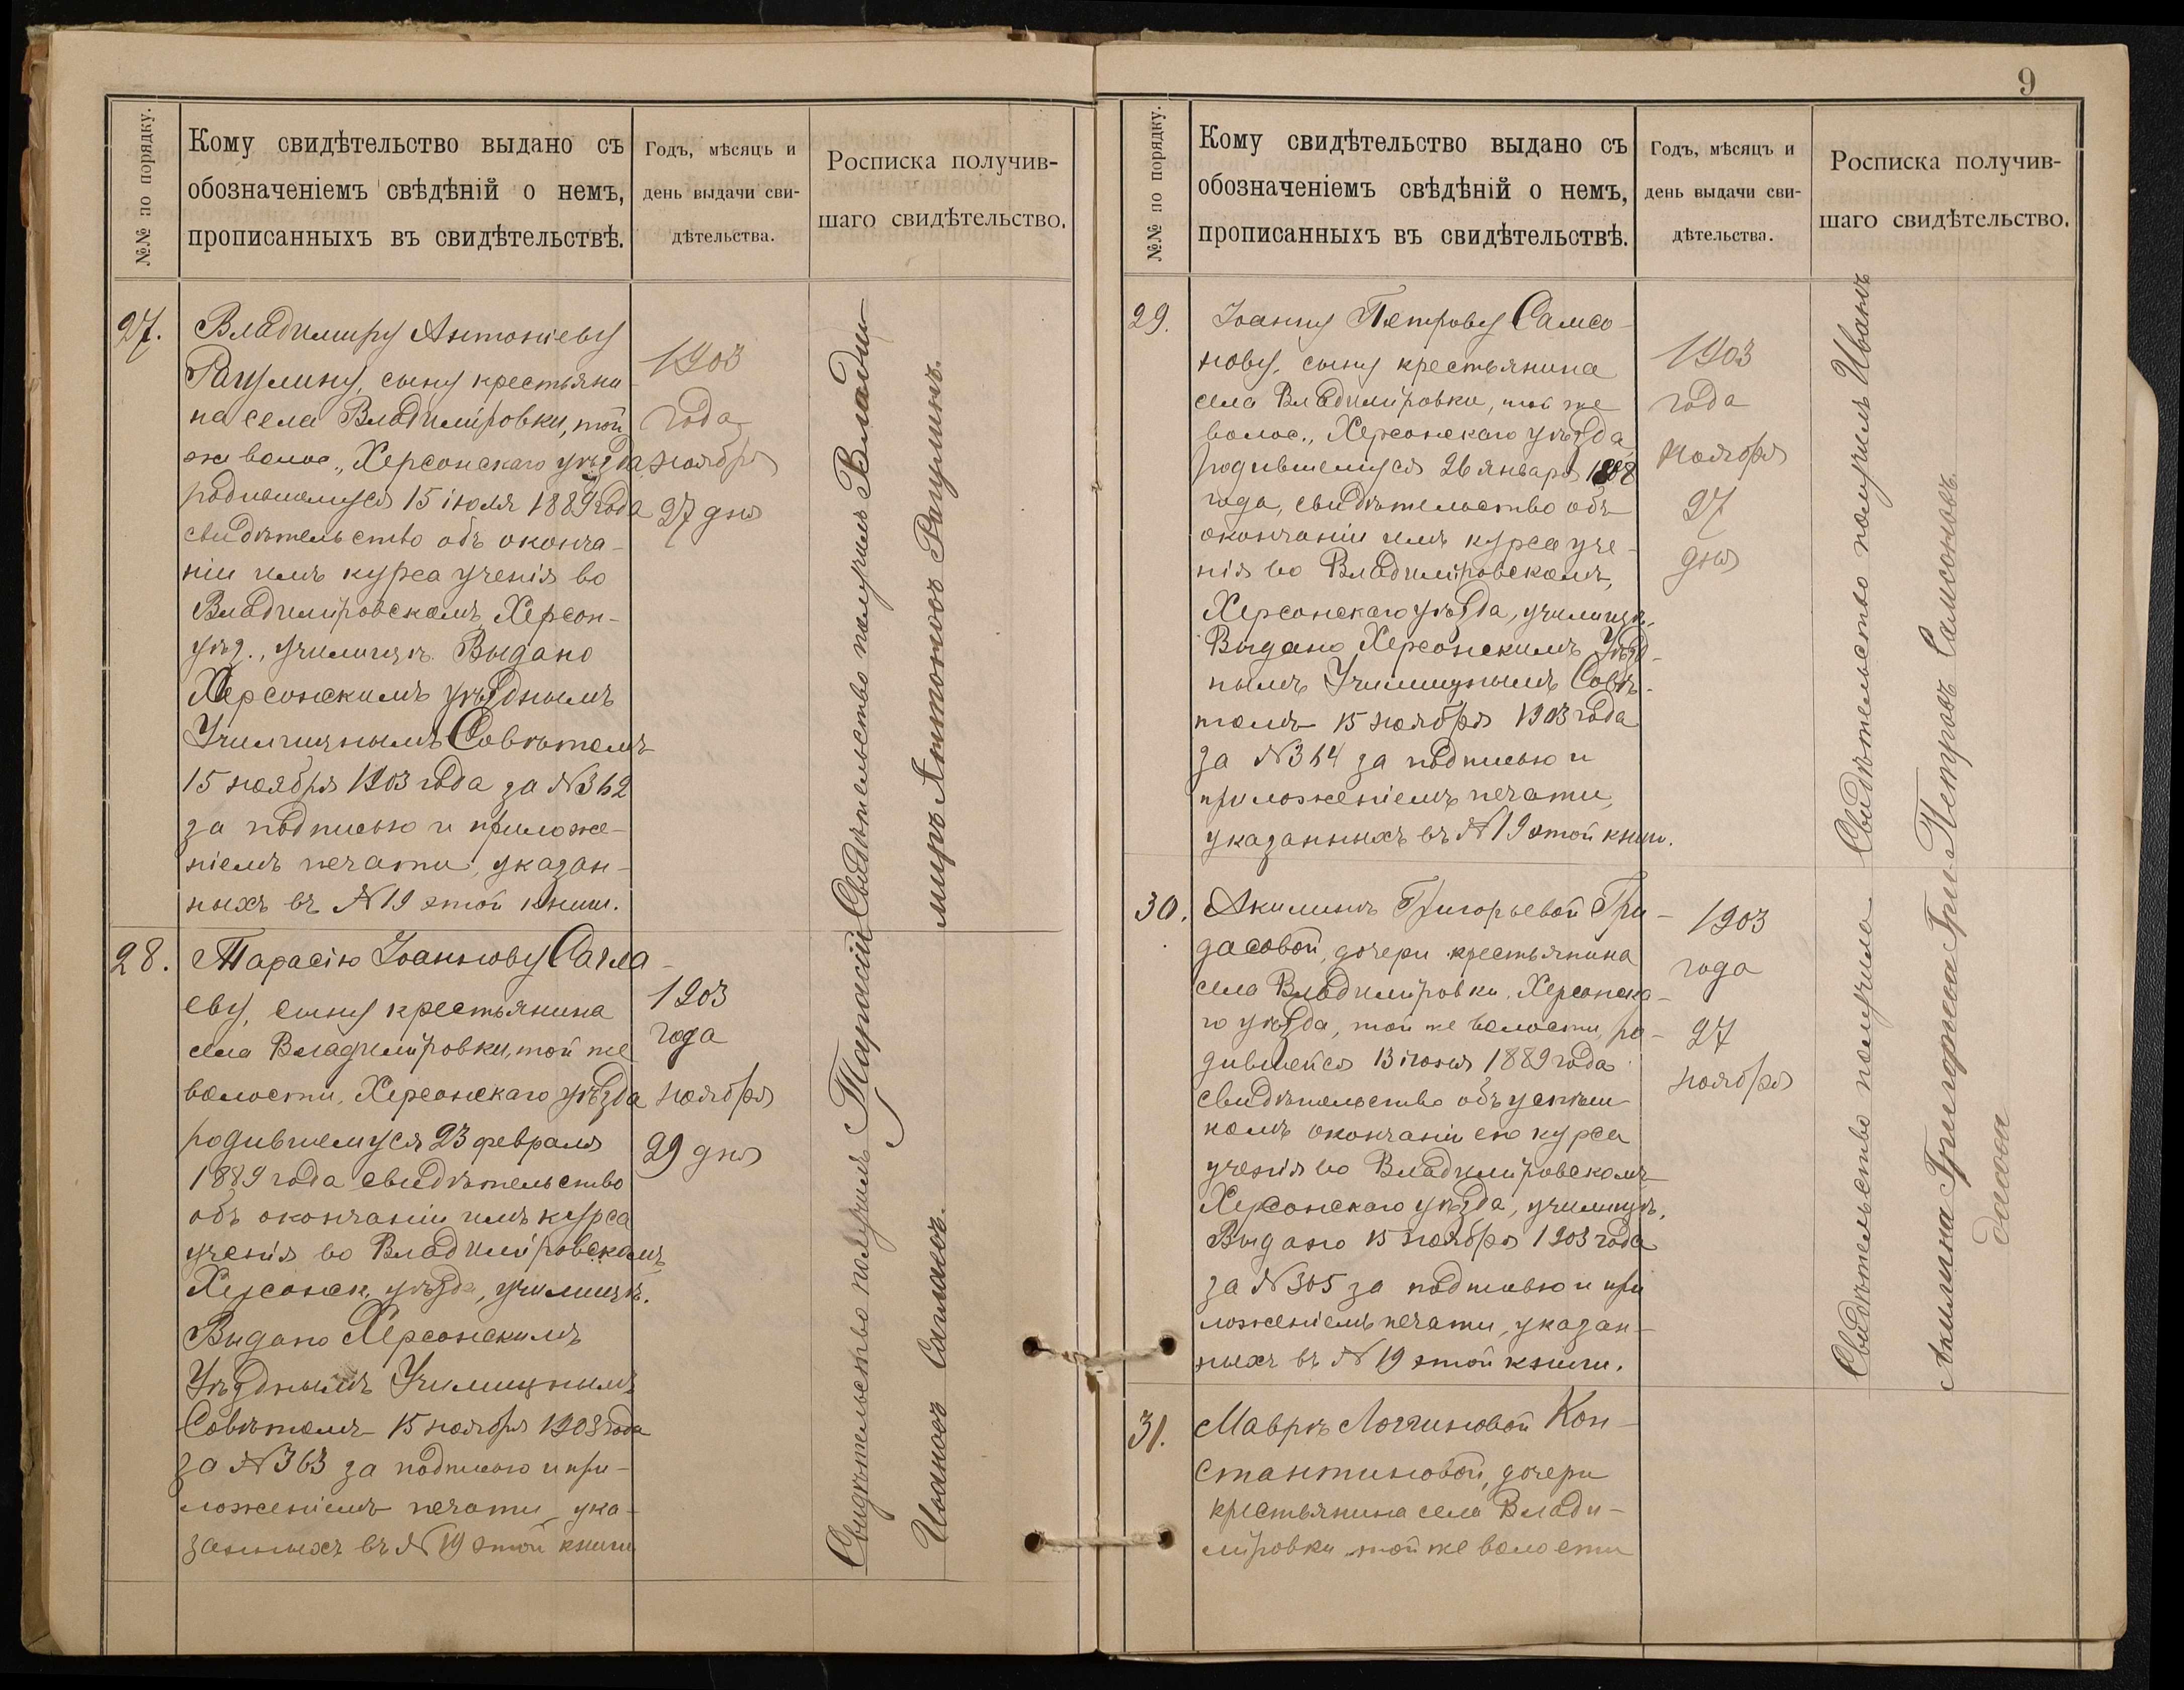 №№ по порядку.
Кому свидѣтельство выдано съ
обозначеніемъ свѣдѣній о немъ,
прописанныхъ въ свидѣтельствѣ.
Годъ, мѣсяцъ и
день выдачи сви-
дѣтельства.
Росписка получив-
шаго свидѣтельство.
27.
Владимиру Антоніеву
Рацулину, сыну крестьяни-
на села Владимировки, той
же волос., Херсонскаго уѣзда,
родившемуся 15 іюля 1889 года
свидѣтельство объ оконча-
ніи имъ курса ученія во
Владимировскомъ, Херсон-
уѣз., училищѣ. Выдано
Херсонскимъ уѣзднымъ
Училищнымъ Совѣтомъ
15 ноября 1903 года за №362
за подписью и приложе-
ніемъ печати, указан-
ныхъ въ №19 этой книги.
1903
года
ноября
27 дня
Свидѣтельство получилъ Влади-
миръ Антоновъ Рацулинъ.
28.
Тарасію Іоаннову
еву, сыну крестьянина
села Владимировки, той же
волости, Херсонскаго уѣзда
родившемуся 23 февраля
1889 года свидѣтельство
объ окончаніи имъ курса
ученія во Владимировскомъ,
Херсонск. уѣзда, училищѣ.
Выдано Херсонскимъ
Уѣзднымъ Училищнымъ
Совѣтомъ 15 ноября 1903 года
за №363 за подписью и при-
ложеніемъ печати, ука-
занныхъ въ №19 этой книги
1903
года
ноября
29 дня
Свидѣтельство получилъ Тарасій
Ивановъ
9
№№ по порядку.
Кому свидѣтельство выдано съ
обозначеніемъ свѣдѣній о немъ,
прописанныхъ въ свидѣтельствѣ.
Годъ, мѣсяцъ и
день выдачи сви-
дѣтельства.
Росписка получив-
шаго свидѣтельство.
29.
Іоанну Петрову Самсо-
нову, сыну крестьянина
села Владимировки, той же
волос., Херсонскаго уѣзда,
родившемуся 26 января 1888
года, свидѣтельство объ
окончаніи имъ курса уче-
нія во Владимировскомъ,
Херсонскаго уѣзда, училищѣ.
Выдано Херсонскимъ Уѣзд-
нымъ Училищнымъ Совѣ-
томъ 15 ноября 1903 года
за №364 за подписью и
приложеніемъ печати,
указанныхъ въ №19 этой книги.
1903
года
ноября
27
дня
Свидѣтельство получилъ Иванъ
Петровъ Самсоновъ.
30.
Акилинѣ Григорьевой Гри-
дасовой, дочери крестьянина
села Владимировки, Херсонска-
го уѣзда, той же волости, ро-
дившейся 13 іюня 1889 года
свидѣтельство объ успѣш-
номъ окончаніи ею курса
ученія во Владимировскомъ
Херсонскаго уѣзда, училищѣ.
Выдано 15 ноября 1903 года
за №305 за подписью и при
ложеніемъ печати, указан-
ныхъ въ №19 этой книги.
1903
года
27
ноября
Свидѣтельство получила
Акилина Григорьева Гри-
дасова
31.
Маврѣ Логгиновой Кон-
стантиновой, дочери
крестьянина села Влади-
мировки, той же волости